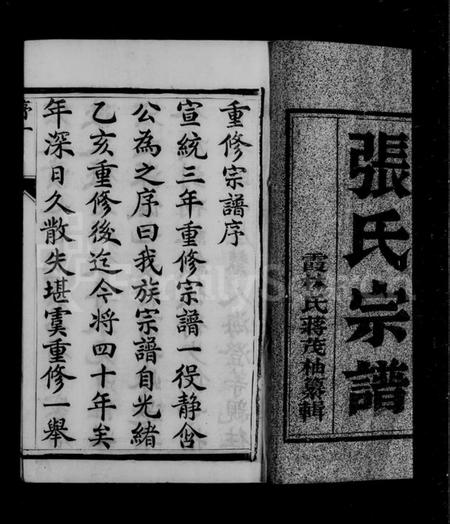 張氏宗譜
霞林氏蔣茂柚纂輯
重修宗譜序
宣統三年重修宗譜一役靜含
公為之序曰我族宗譜自光緒
乙亥重修後迄今將四十年矣
年深日久散失堪虞重修一舉